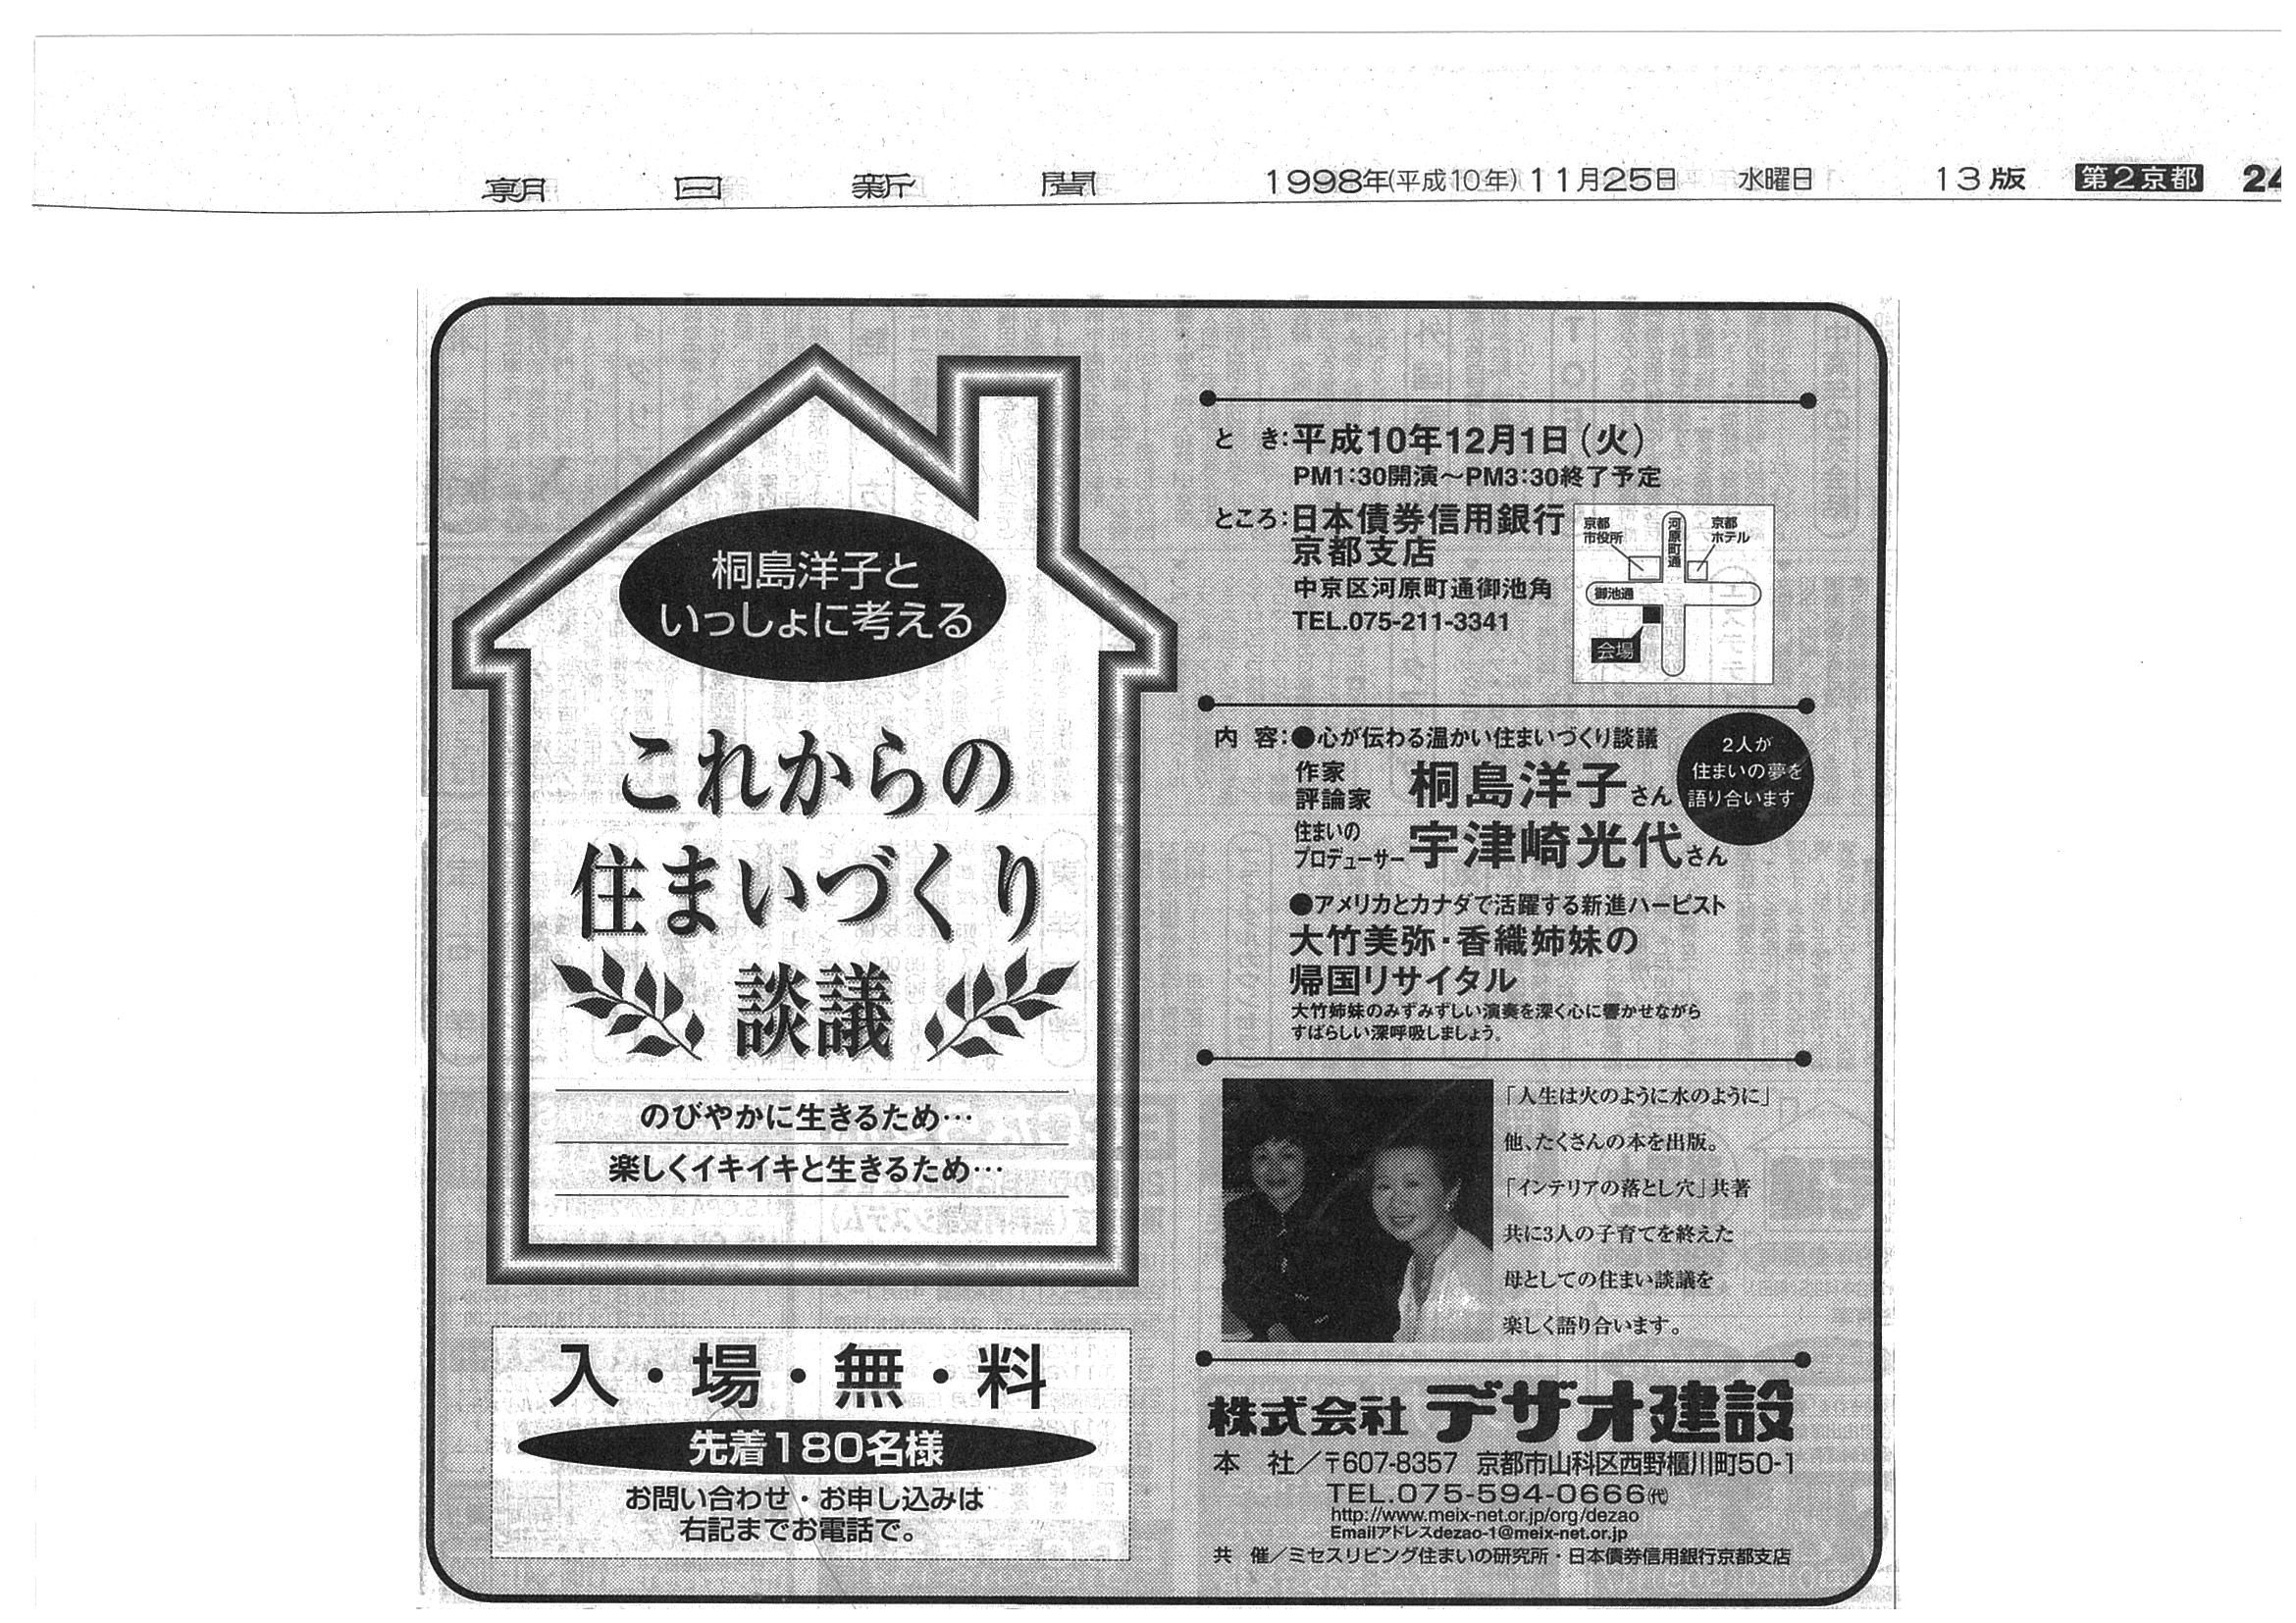 朝日新聞 1998年(平成10年)11月25日 水曜日 13版 第2京都 24
桐島洋子と
いっしょに考える
これからの
住まいづくり
談議
のびやかに生きるため…
楽しくイキイキと生きるため…
入・場・無・料
先着180名様
お問い合わせ・お申し込みは
右記までお電話で。
と き:平成10年12月1日(火)
PM1:30開演〜PM3:30終了予定
ところ:日本債券信用銀行
京都支店
中京区河原町通御池角
TEL.075-211-3341
京都
市役所
河原町通
京都
ホテル
御池通
会場
内 容:●心が伝わる温かい住まいづくり談議
作家
評論家 桐島洋子さん
住まいの
プロデューサー 宇津崎光代さん
2人が
住まいの夢を
語り合います
●アメリカとカナダで活躍する新進ハーピスト
大竹美弥・香織姉妹の
帰国リサイタル
大竹姉妹のみずみずしい演奏を深く心に響かせながら
すばらしい深呼吸しましょう。
「人生は火のように水のように」
他、たくさんの本を出版。
「インテリアの落とし穴」共著
共に3人の子育てを終えた
母としての住まい談議を
楽しく語り合います。
株式会社 デザオ建設
本 社/〒607-8357 京都市山科区西野櫃川町50-1
TEL.075-594-0666㈹
http://www.meix-net.or.jp/org/dezao
Emailアドレスdezao-1@meix-net.or.jp
共 催/ミセスリビング住まいの研究所・日本債券信用銀行京都支店